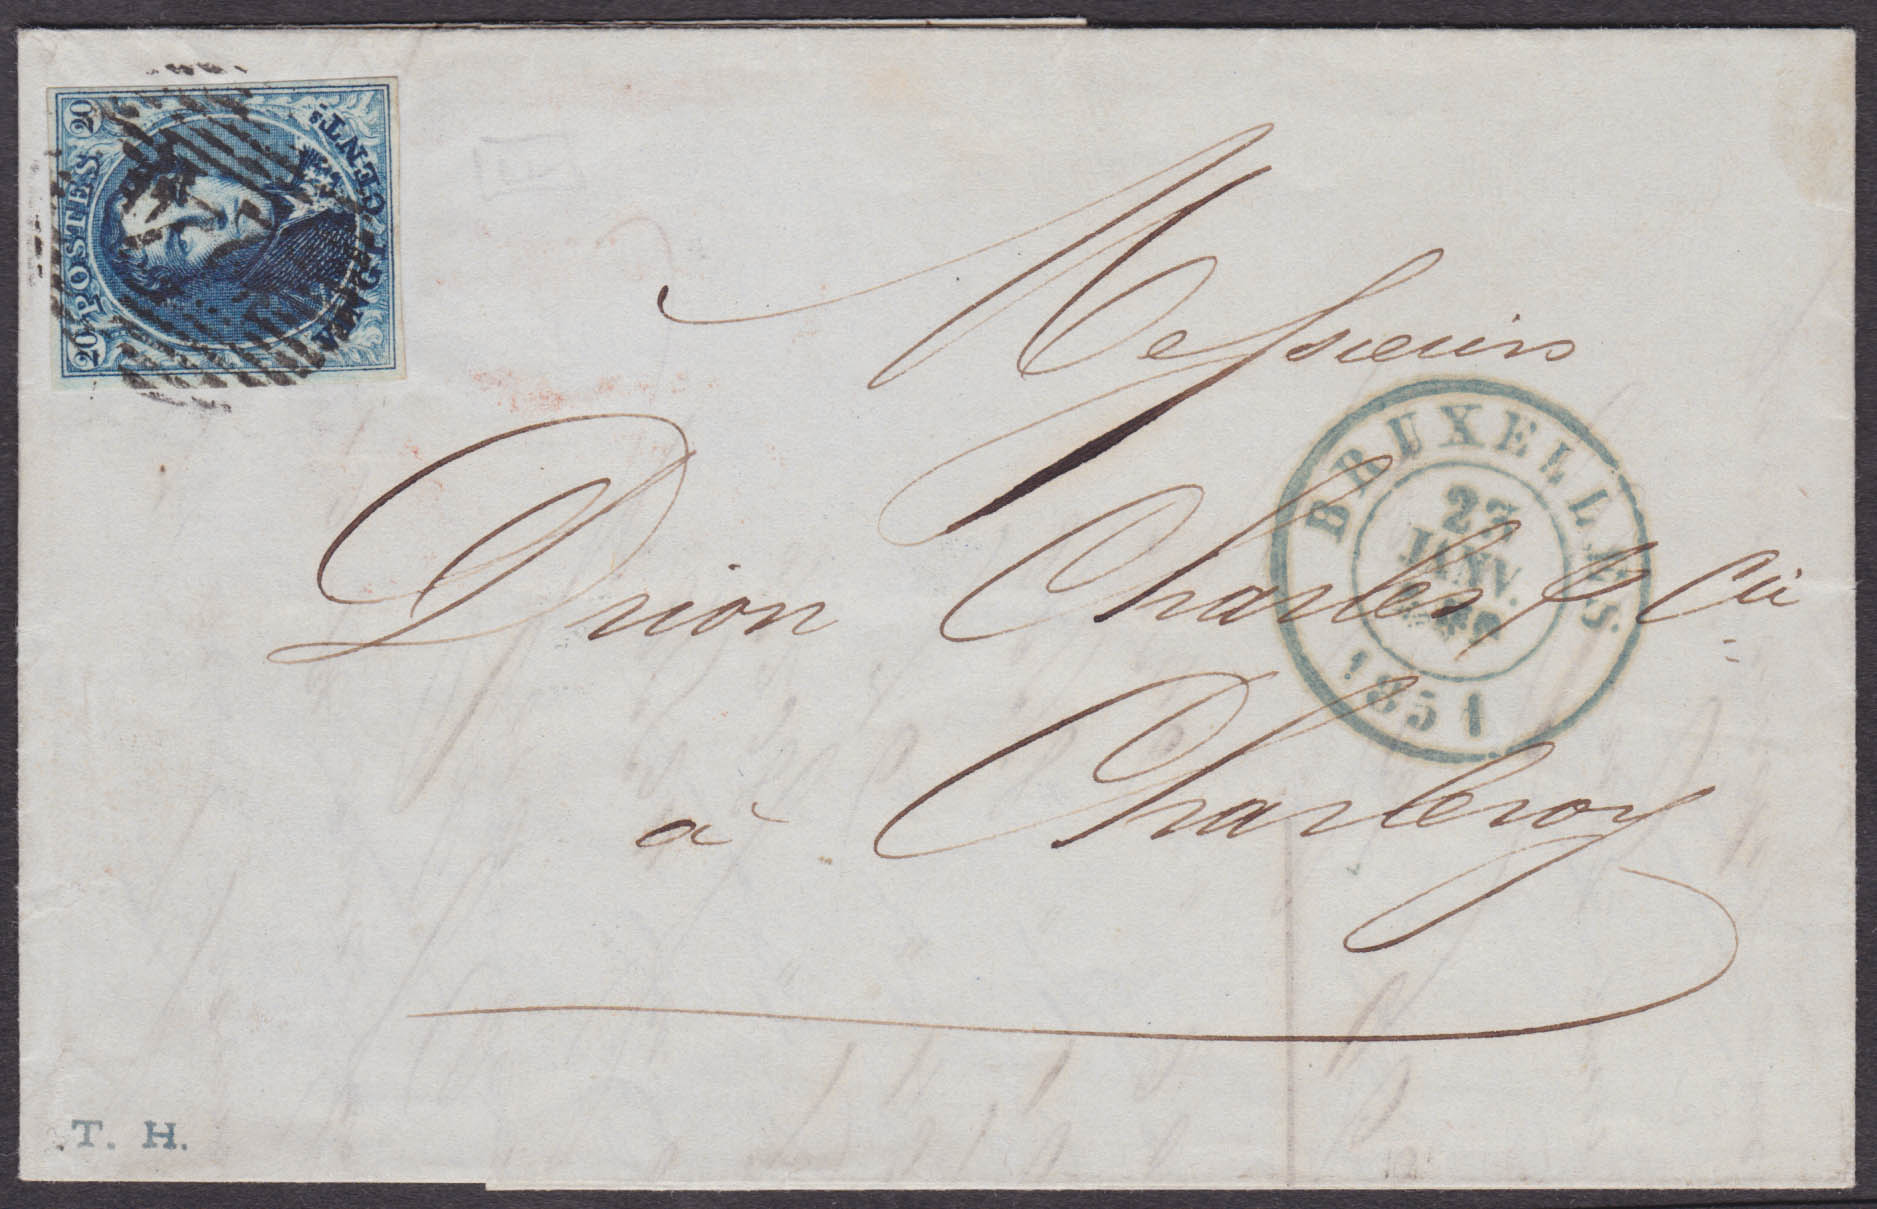 20 POSTES 20
VINGT CENTS.
Messieurs
Drion Charles & Cie
à Charleroy
BRUXELLES.
23
JANV.
1851
T. H.